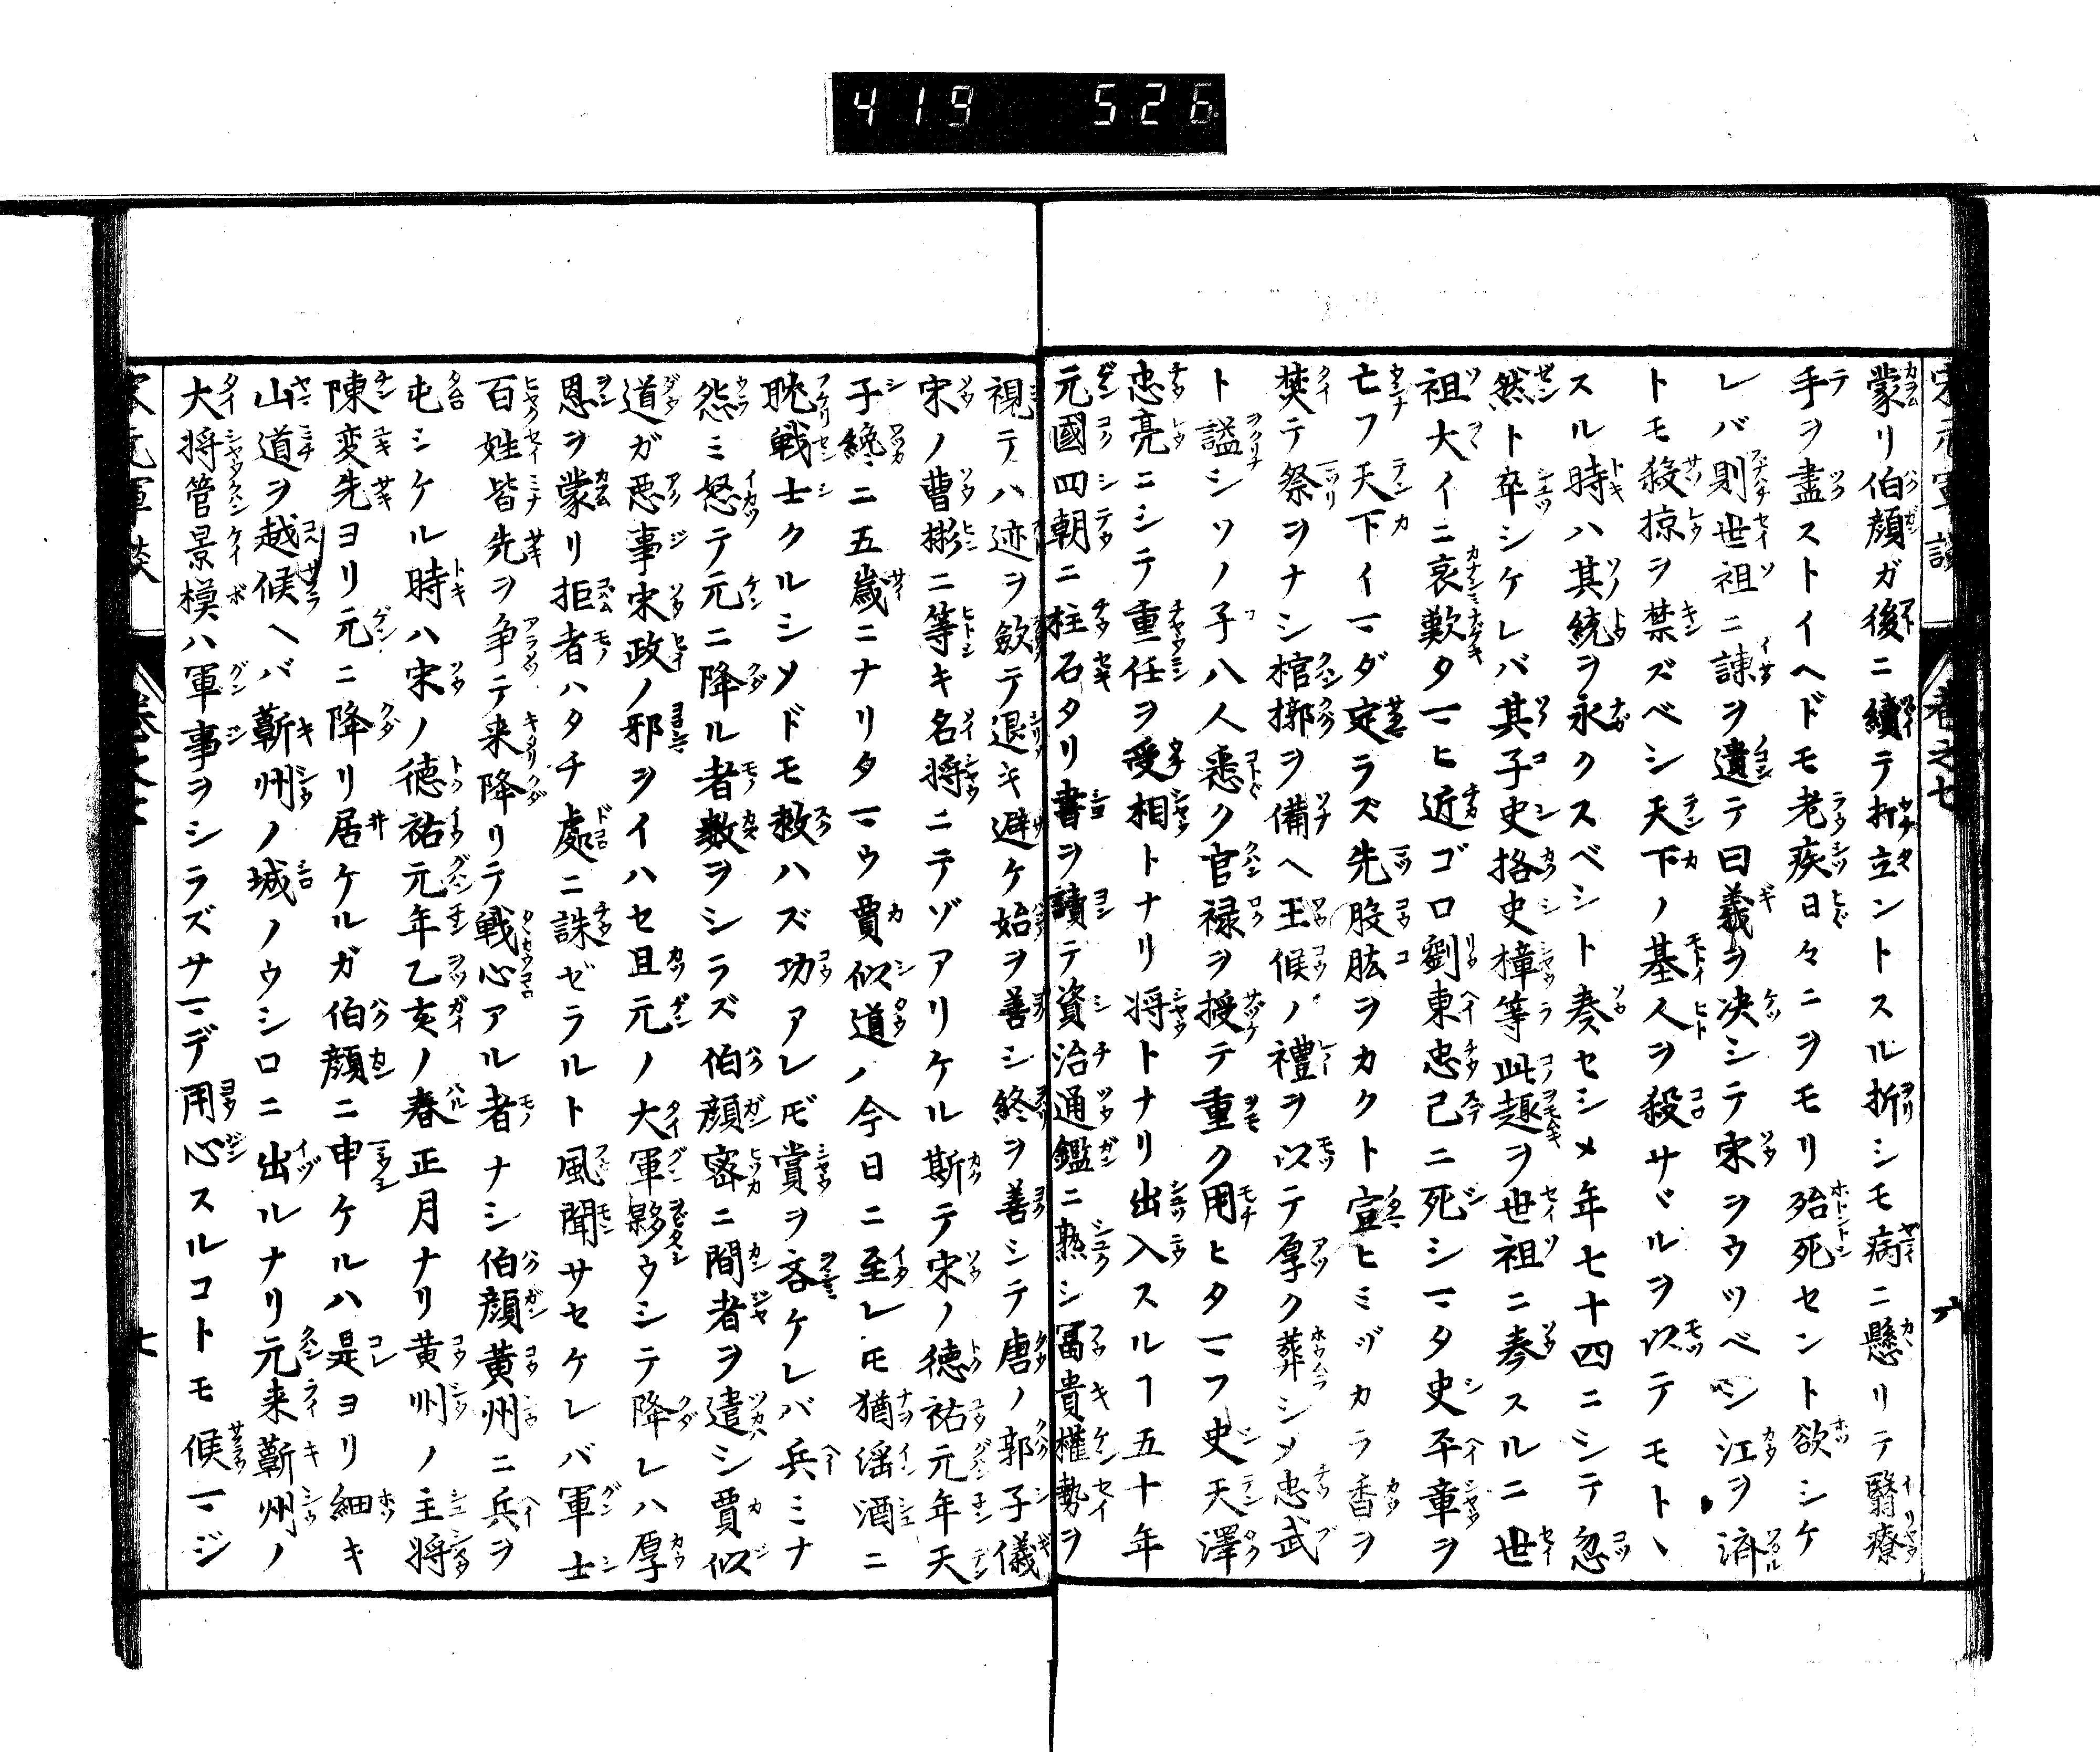 419 526
宋元軍談 卷之七 六
蒙リ伯顔ガ後ニ續テ打立ントスル折シモ病ニ懸リテ醫療
手ヲ盡ストイヘドモ老疾日々ニヲモリ殆死セント欲シケ
レバ則世祖ニ諫ヲ遺テ曰義ヲ决シテ宋ヲウツベシ江ヲ濟
トモ殺掠ヲ禁ズベシ天下ノ基人ヲ殺サヾルヲ以テモトヽ
スル時ハ其統ヲ永クスベシト奏セシメ年七十四ニシテ忽
然ト卒シケレバ其子史挌史樟等此趣ヲ世祖ニ奏スルニ世
祖大イニ哀歎タマヒ近ゴロ劉東忠已ニ死シマタ史平章ヲ
亡フ天下イマダ定ラズ先股肱ヲカクト宣ヒミヅカラ香ヲ
焚テ祭ヲナシ棺槨ヲ備ヘ王侯ノ禮ヲ以テ厚ク葬シメ忠武
ト謚シソノ子八人悉ク官禄ヲ授テ重ク用ヒタマフ史天澤
忠亮ニシテ重任ヲ受相トナリ将トナリ出入スルヿ五十年
元國四朝ニ柱石タリ書ヲ讀テ資治通鑑ニ熟シ冨貴權勢ヲ
視テハ迹ヲ斂テ退キ避ケ始ヲ善シ終ヲ善シテ唐ノ郭子儀
宋ノ曹彬ニ等キ名将ニテゾアリケル斯テ宋ノ徳祐元年天
子纔ニ五歳ニナリタマウ賈似道ノ今日ニ至レモ猶滛酒ニ
耽戦士クルシメドモ救ハズ功アレドモ賞ヲ吝ケレバ兵ミナ
怨ミ怒テ元ニ降ル者数ヲシラズ伯顔密ニ間者ヲ遣シ賈似
道ガ悪事宋政ノ邪ヲイハセ且元ノ大軍夥ウシテ降レハ厚
恩ヲ蒙リ拒者ハタチ處ニ誅ゼラルト風聞サセケレバ軍士
百姓皆先ヲ争テ来降リテ戦心アル者ナシ伯顔黄州ニ兵ヲ
屯シケル時ハ宋ノ徳祐元年乙亥ノ春正月ナリ黄州ノ主将
陳変先ヨリ元ニ降リ居ケルガ伯顔ニ申ケルハ是ヨリ細キ
山道ヲ越候ヘバ蘄州ノ城ノウシロニ出ルナリ元来蘄州ノ
大将管景模ハ軍事ヲシラズサマデ用心スルコトモ候マジ
宋元軍談 卷之七 七